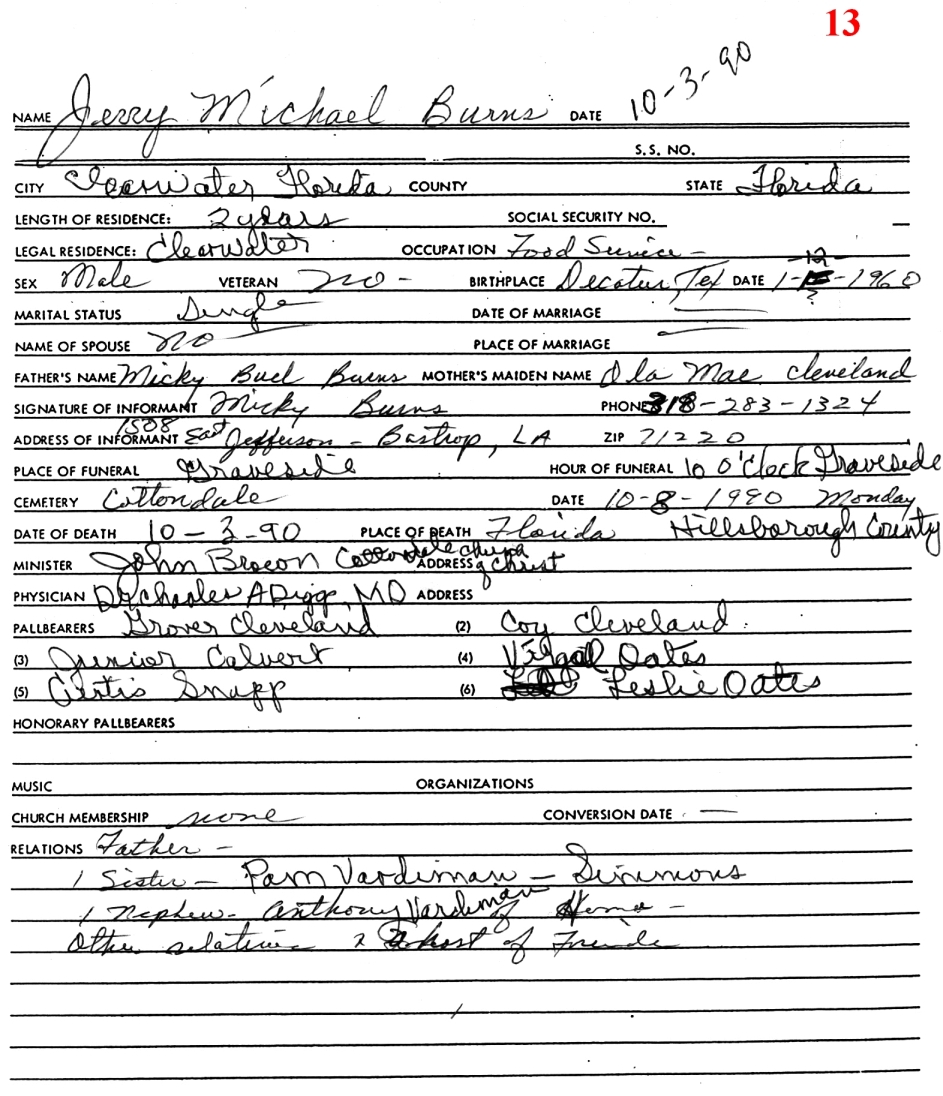 13
NAME Jerry Michael Burns DATE 10-3-90
S.S. NO.
CITY Clearwater, Florida COUNTY STATE Florida
LENGTH OF RESIDENCE: 2 years SOCIAL SECURITY NO. —
LEGAL RESIDENCE: Clearwater OCCUPATION Food Service -
12
SEX Male VETERAN no - BIRTHPLACE Decatur, Tex DATE 1- -1960
?
MARITAL STATUS Single DATE OF MARRIAGE —
NAME OF SPOUSE no PLACE OF MARRIAGE —
FATHER'S NAME Micky Buel Burns MOTHER'S MAIDEN NAME Ola Mae Cleveland
SIGNATURE OF INFORMANT Micky Burns PHONE 318-283-1324
ADDRESS OF INFORMANT 1508 East Jefferson - Bastrop, LA ZIP 71220
PLACE OF FUNERAL Graveside HOUR OF FUNERAL 10 O'Clock Graveside
CEMETERY Cottondale DATE 10-8-1990 Monday
DATE OF DEATH 10-3-90 PLACE OF DEATH Florida Hillsborough County
MINISTER John Brocon Cottondale Church ADDRESS of Christ
PHYSICIAN Dr Charles A Diggs, MD ADDRESS
PALLBEARERS Grover Cleveland (2) Coy Cleveland
(3) Junior Calvert (4) Virgal Oates
(5) Curtis Snapp (6) Leslie Oates
HONORARY PALLBEARERS
MUSIC ORGANIZATIONS
CHURCH MEMBERSHIP none CONVERSION DATE —
RELATIONS Father -
1 Sister - Pam Vardiman - Simmons
1 Nephew - Anthony Vardiman of Home -
Other relatives & a host of Friends